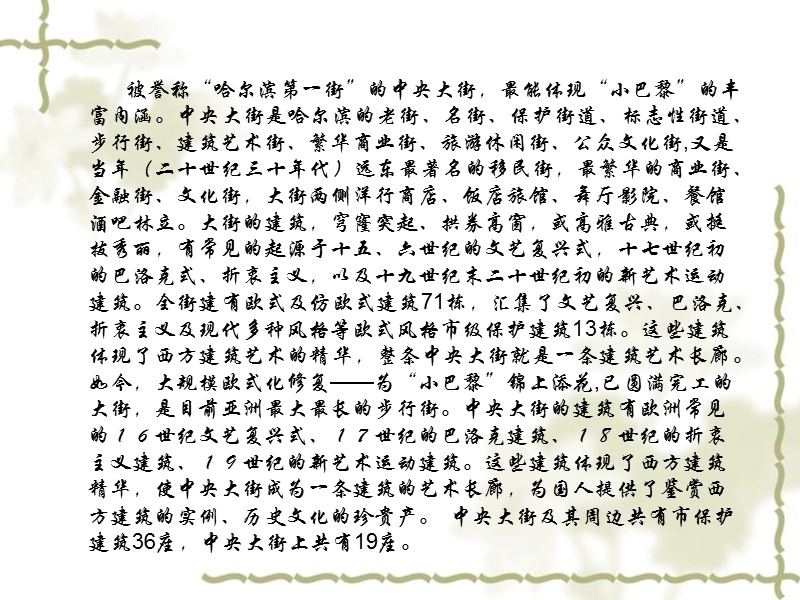 被誉称“哈尔滨第一街”的中央大街，最能体现“小巴黎”的丰
富内涵。中央大街是哈尔滨的老街、名街、保护街道、标志性街道、
步行街、建筑艺术街、繁华商业街、旅游休闲街、公众文化街,又是
当年（二十世纪三十年代）远东最著名的移民街，最繁华的商业街、
金融街、文化街，大街两侧洋行商店、饭店旅馆、舞厅影院、餐馆
酒吧林立。大街的建筑，穹窿突起、拱券高窗，或高雅古典，或挺
拔秀丽，有常见的起源于十五、六世纪的文艺复兴式，十七世纪初
的巴洛克式、折衷主义，以及十九世纪末二十世纪初的新艺术运动
建筑。全街建有欧式及仿欧式建筑71栋，汇集了文艺复兴、巴洛克、
折衷主义及现代多种风格等欧式风格市级保护建筑13栋。这些建筑
体现了西方建筑艺术的精华，整条中央大街就是一条建筑艺术长廊。
如今，大规模欧式化修复——为“小巴黎”锦上添花,已圆满完工的
大街，是目前亚洲最大最长的步行街。中央大街的建筑有欧洲常见
的１６世纪文艺复兴式、１７世纪的巴洛克建筑、１８世纪的折衷
主义建筑、１９世纪的新艺术运动建筑。这些建筑体现了西方建筑
精华，使中央大街成为一条建筑的艺术长廊，为国人提供了鉴赏西
方建筑的实例、历史文化的珍贵产。 中央大街及其周边共有市保护
建筑36座，中央大街上共有19座。